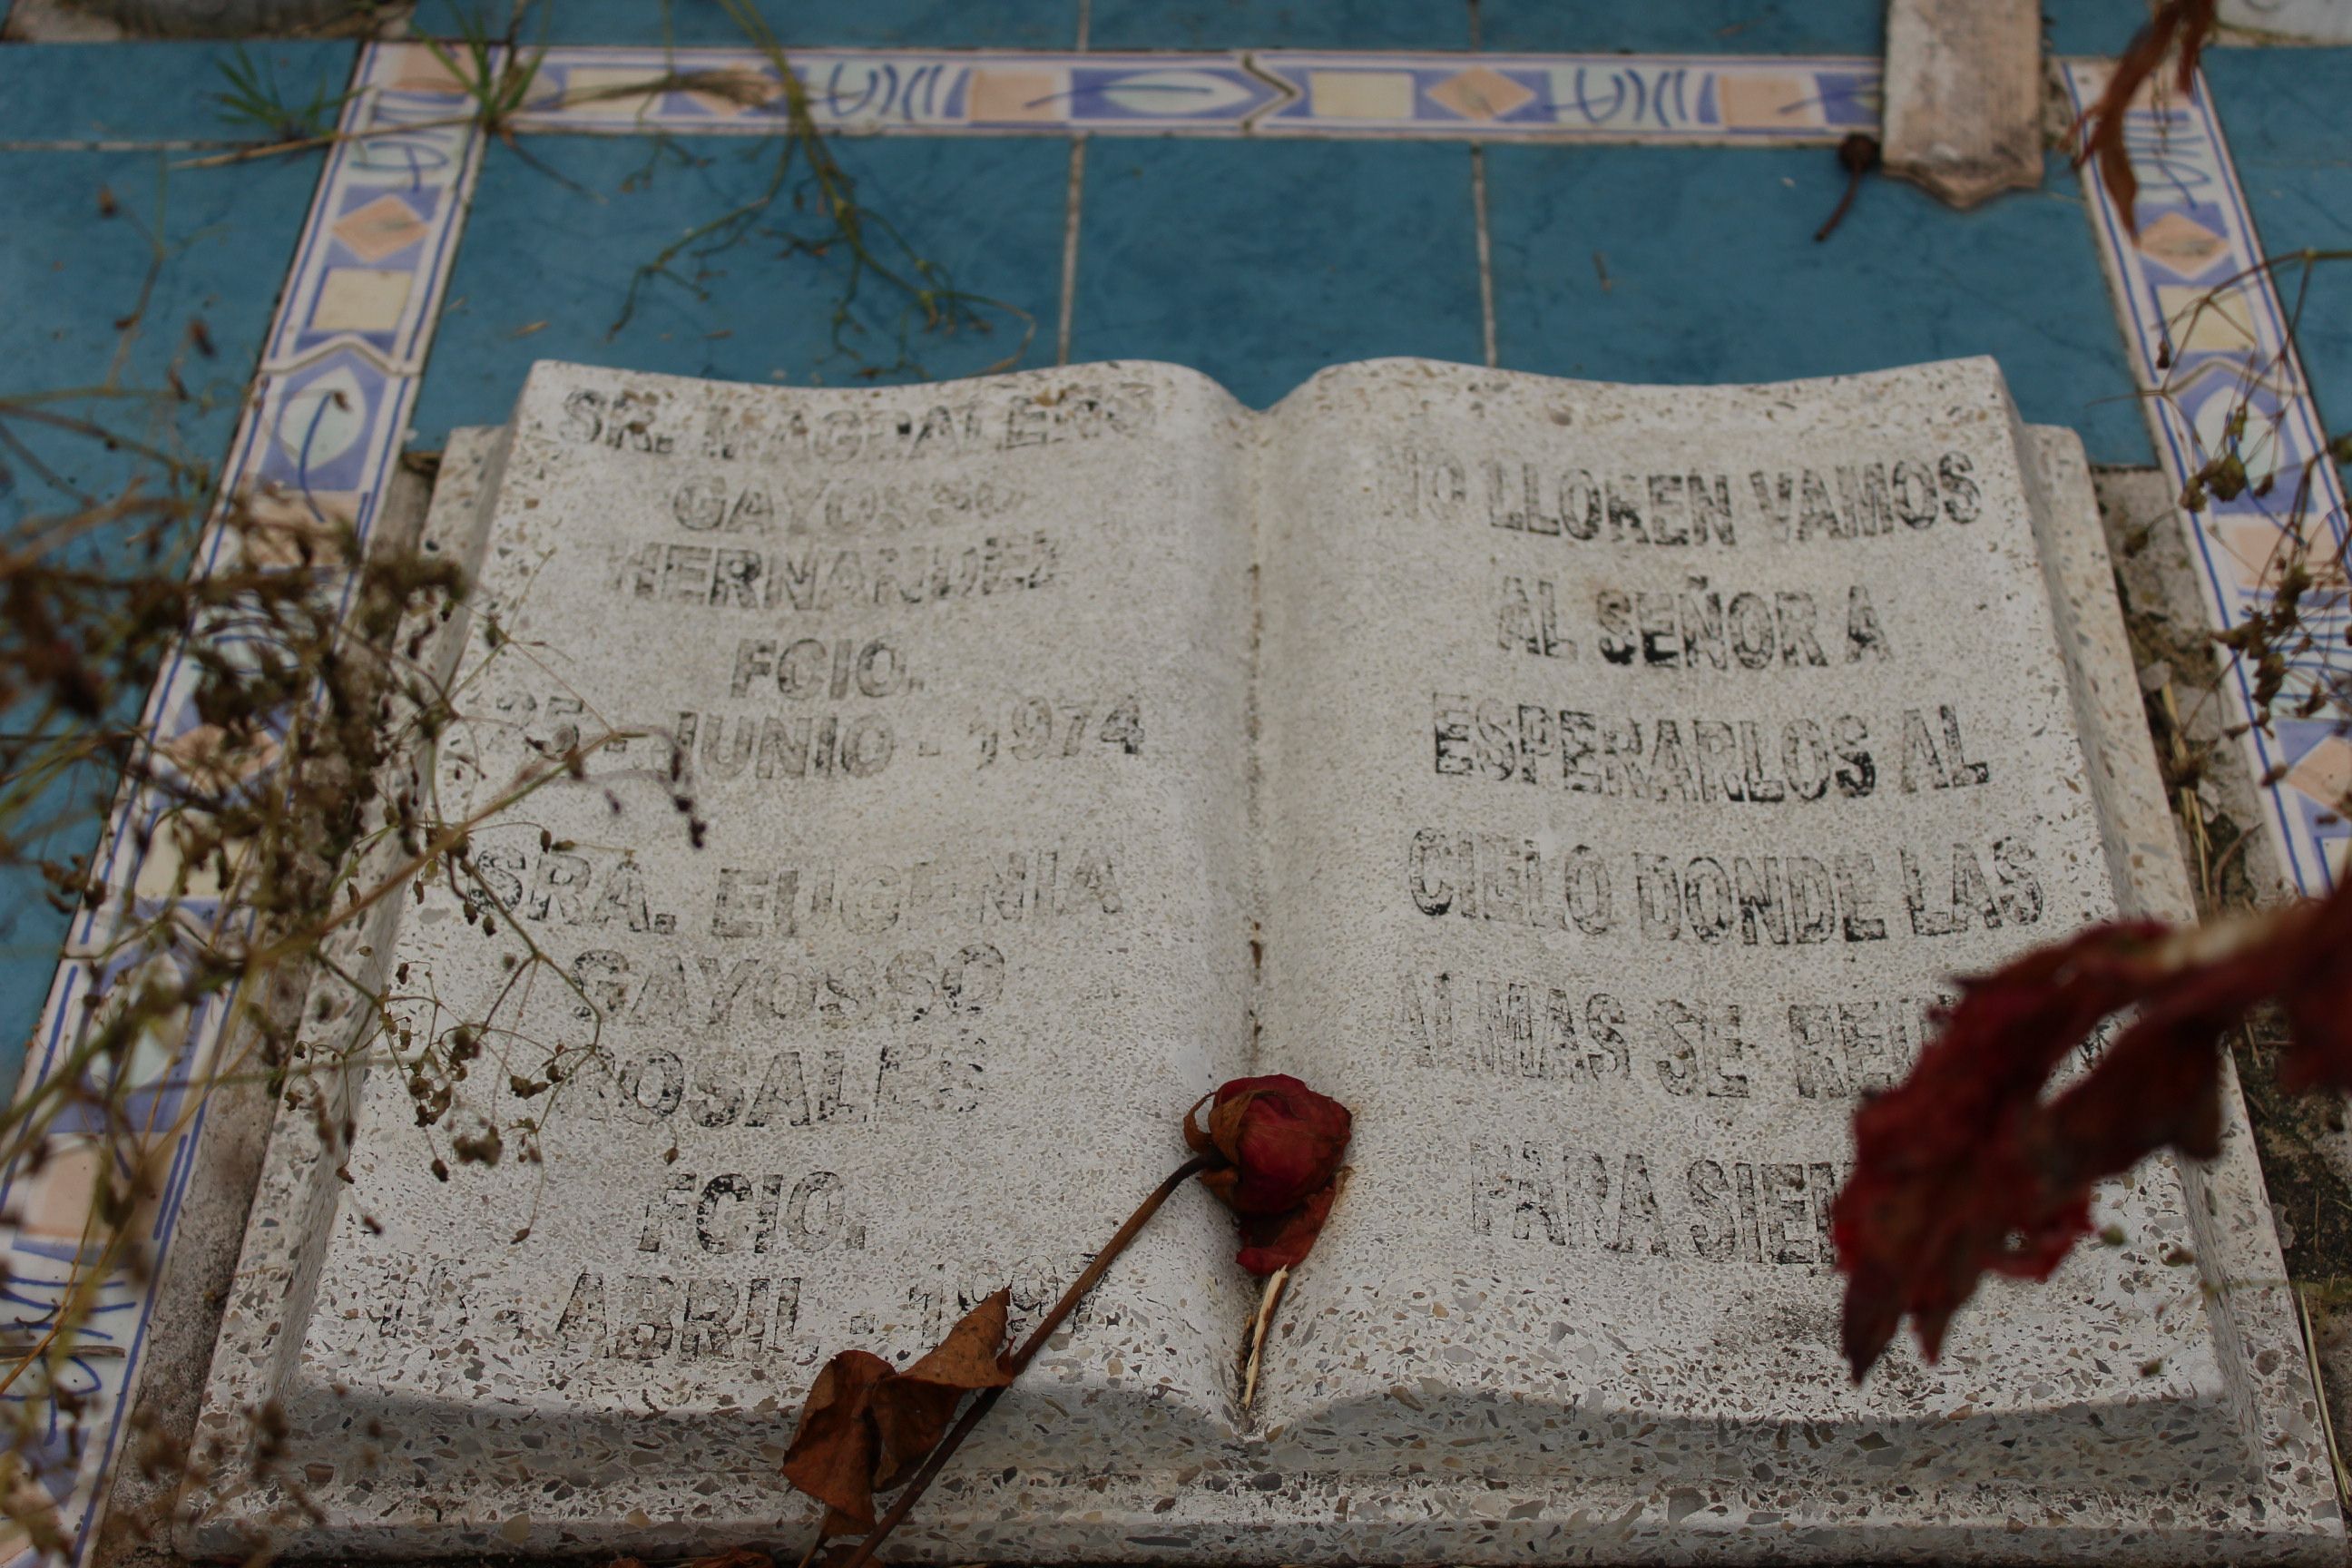 SR. MAGDALENO
GAYOSSO
HERNANDEZ
FCIO.
25 - JUNIO - 1974
SRA. EUGENIA
GAYOSSO
ROSALES
FCIO.
16 - ABRIL - 1997
NO LLOREN VAMOS
AL SEÑOR A
ESPERARLOS AL
CIELO DONDE LAS
ALMAS SE
PARA